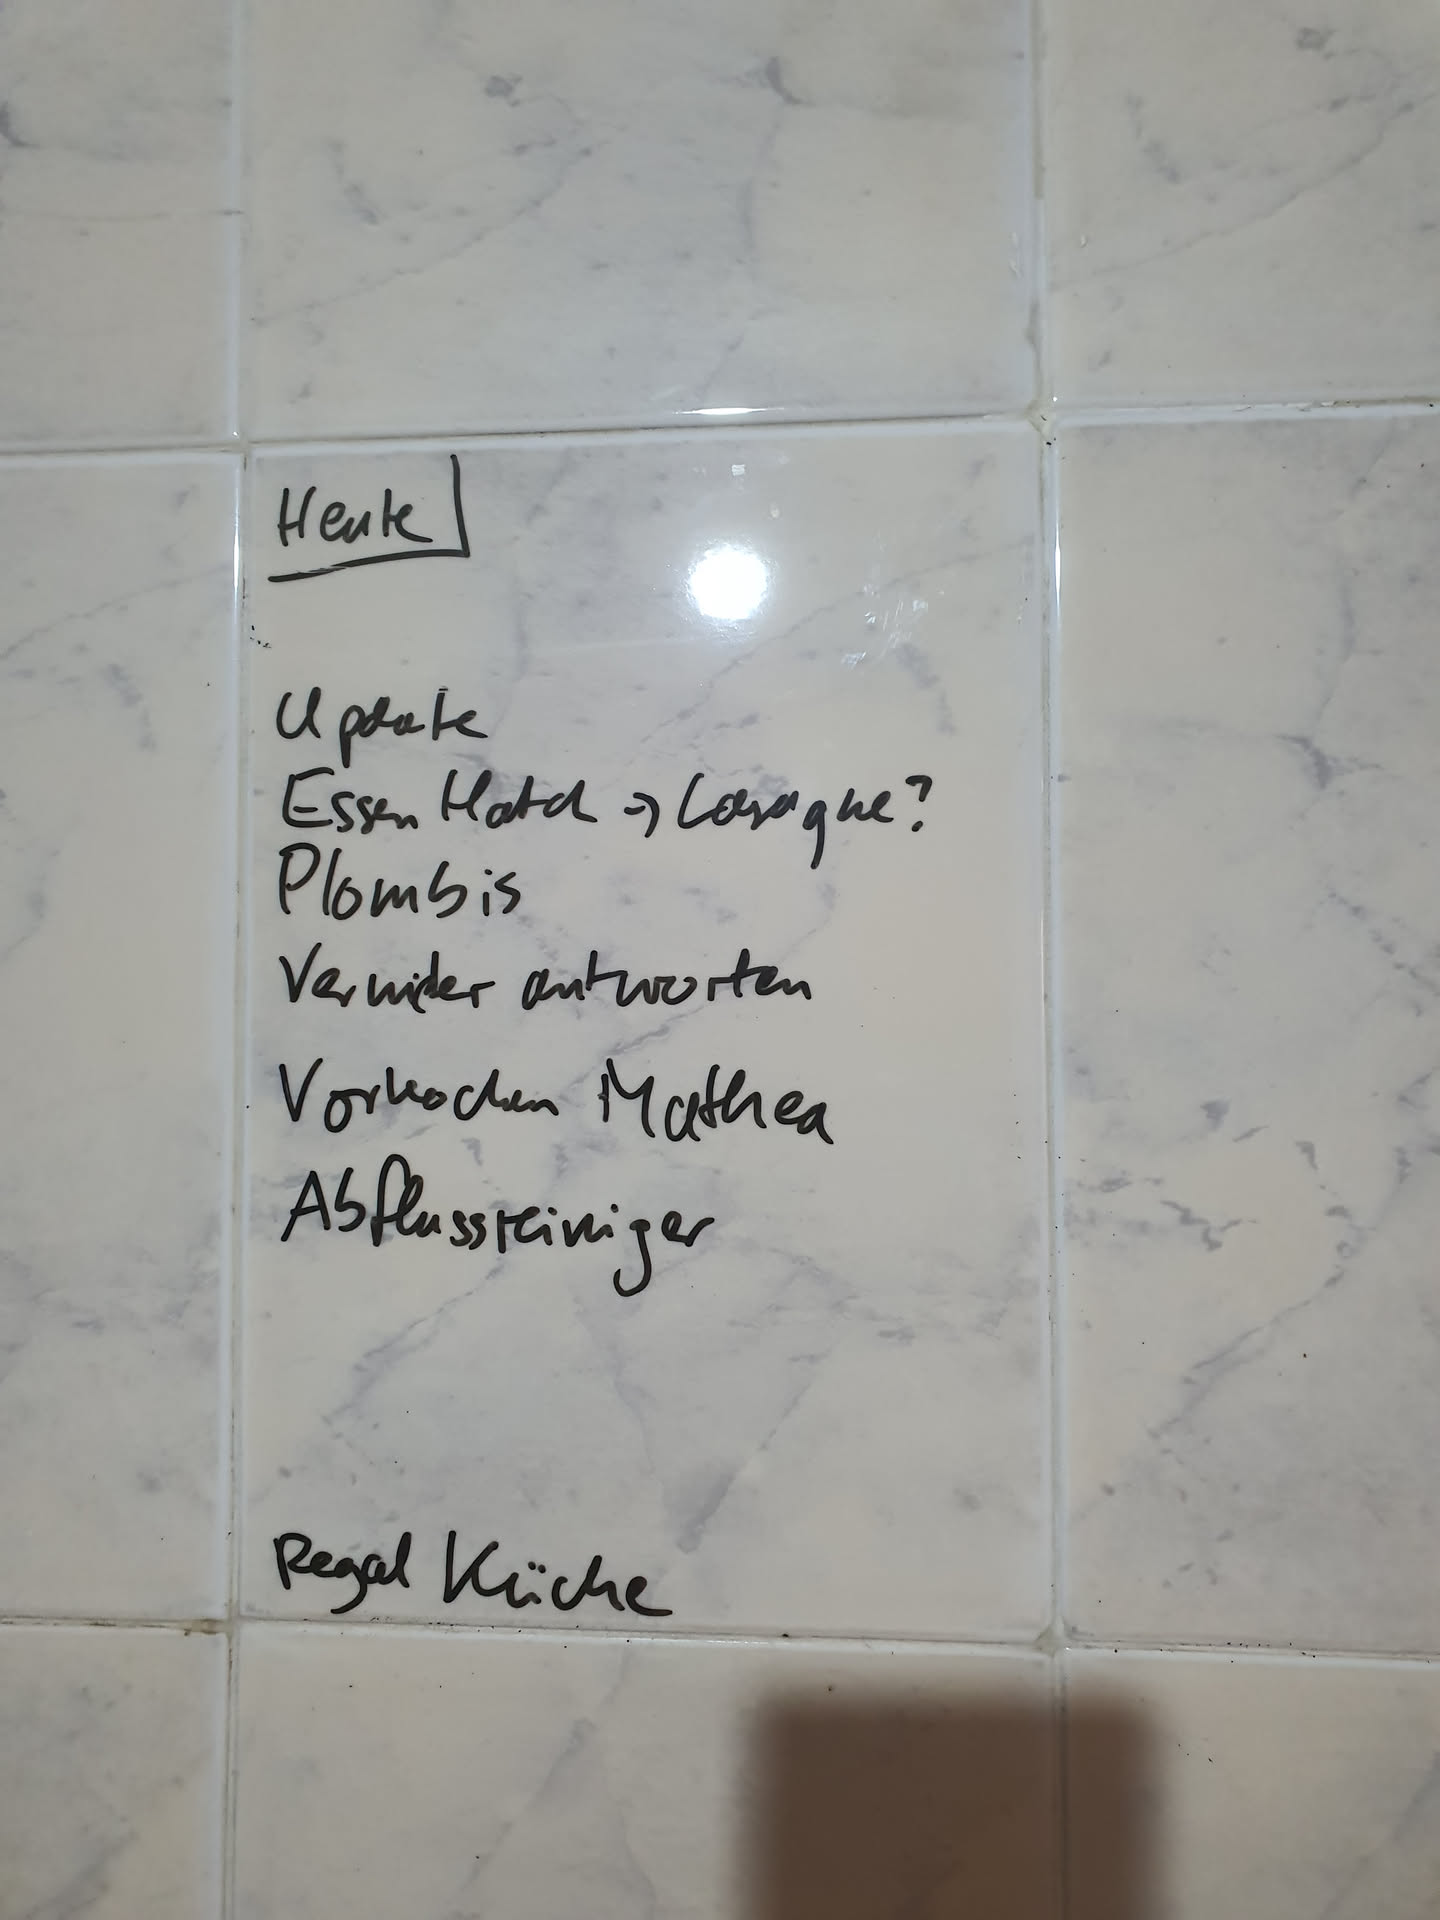 Heute
Update
Essen Match → Lasagne?
Plombis
antworten
Vorkochen Mathea
Abflussreiniger
Regal Küche